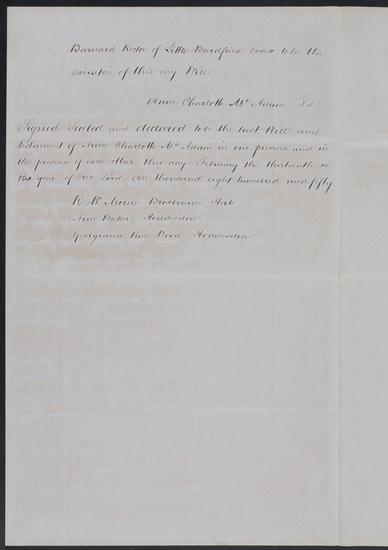 Barnard Rector of Little Bardfield Essex to be the
executor of this my Will
Anne Charlotte Mc Adam LS
Signed Sealed and declared to be the last Will and
testament of Anne Charlotte Mc Adam in our presence and in
the presence of each other this day February the thirteenth in
the year of our Lord one thousand eight hundred and fifty
R W Morice Broxbourne Herts
Ann Baker Hoddesdon
Georgiana Rose Hoddesdon